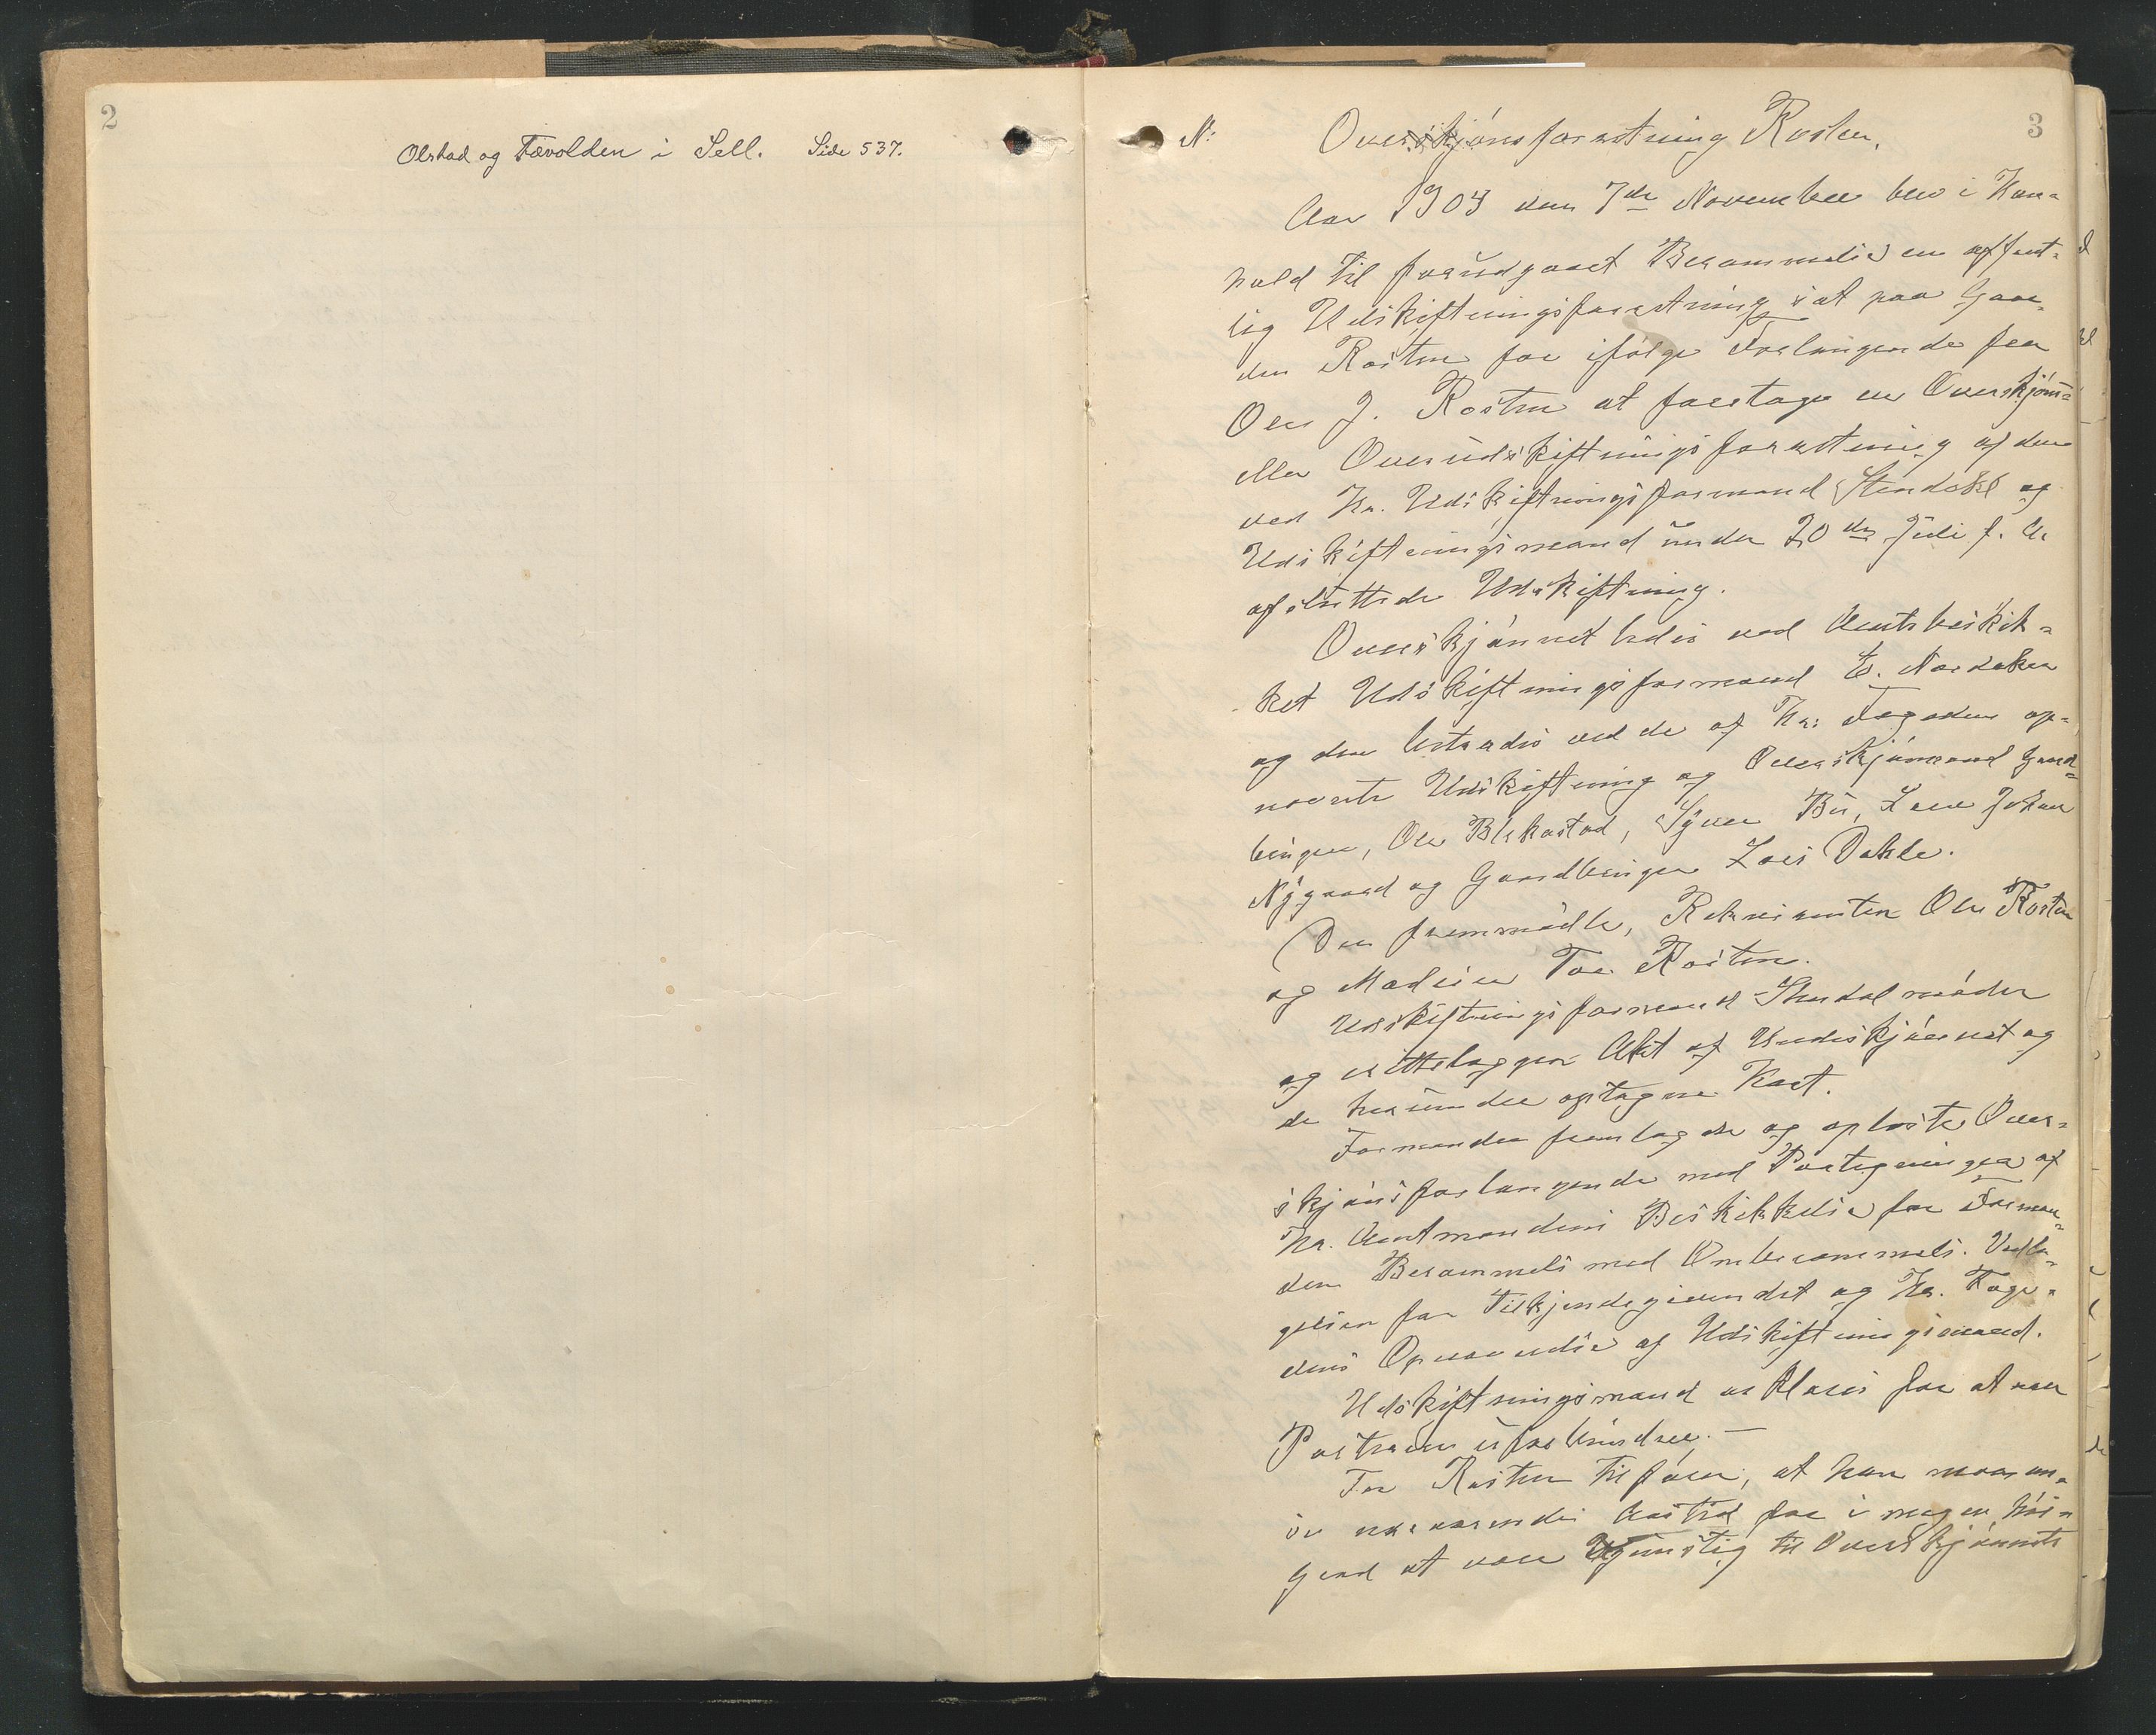 2
Olstad og Tævolden i Sell. Side 537.
3
N:
Overskjønsforretning Rosten.
Aar 1903 den 7de November blev i Hen=
hold til forudgaaet Berammelse en offent=
lig Udskiftningsforretning sat paa Gaar
den Rosten for ifølge Forlangende fra
Ole J. Rosten at foretage en Overskjøns=
eller Overudskiftningsforretning af den
ved Hr. Udskiftningsformand Stendahl og
Udskiftningsmænd under 20de Juli f. A.
afsluttede Udskiftning.
Overskjønnet ledes ved Amtsbeskik=
ket Udskiftningsformand E. Nordaker
og den betrædes ved de af Hr. Fogden op=
nævnte Udskiftning og Overskjønsmænd Gaard=
bruger, Ole Blekastad, Syver Bu, Johan
Nygaard og Gaardbruger Lars Dahle.
Der fremmødte, Rekvirenten Ole Rosten
og Madeier Tor Rosten.
Udskiftningsformand Stendal møder
og Akt af Underskjønnet og
de herunder optagne Kart.
Formanden fremlagde og oplæste Over=
skjønsforlangende med Paategninger af
Hr. Amtmandens Beskikkelse for Forman=
den Berammelse med Omberammelse. Vedta=
gelsen for Tilkjendegivendet og Hr. Foge=
dens Opnævnelse af Udskiftningsmænd.
Udskiftningsmænd erklæres for at være
Parterne uforbundne. —
Tor Rosten tilfører, at han maa an=
se nærværende Aastid for i megen høi
grad at være Ugunstig til Overskjønnets